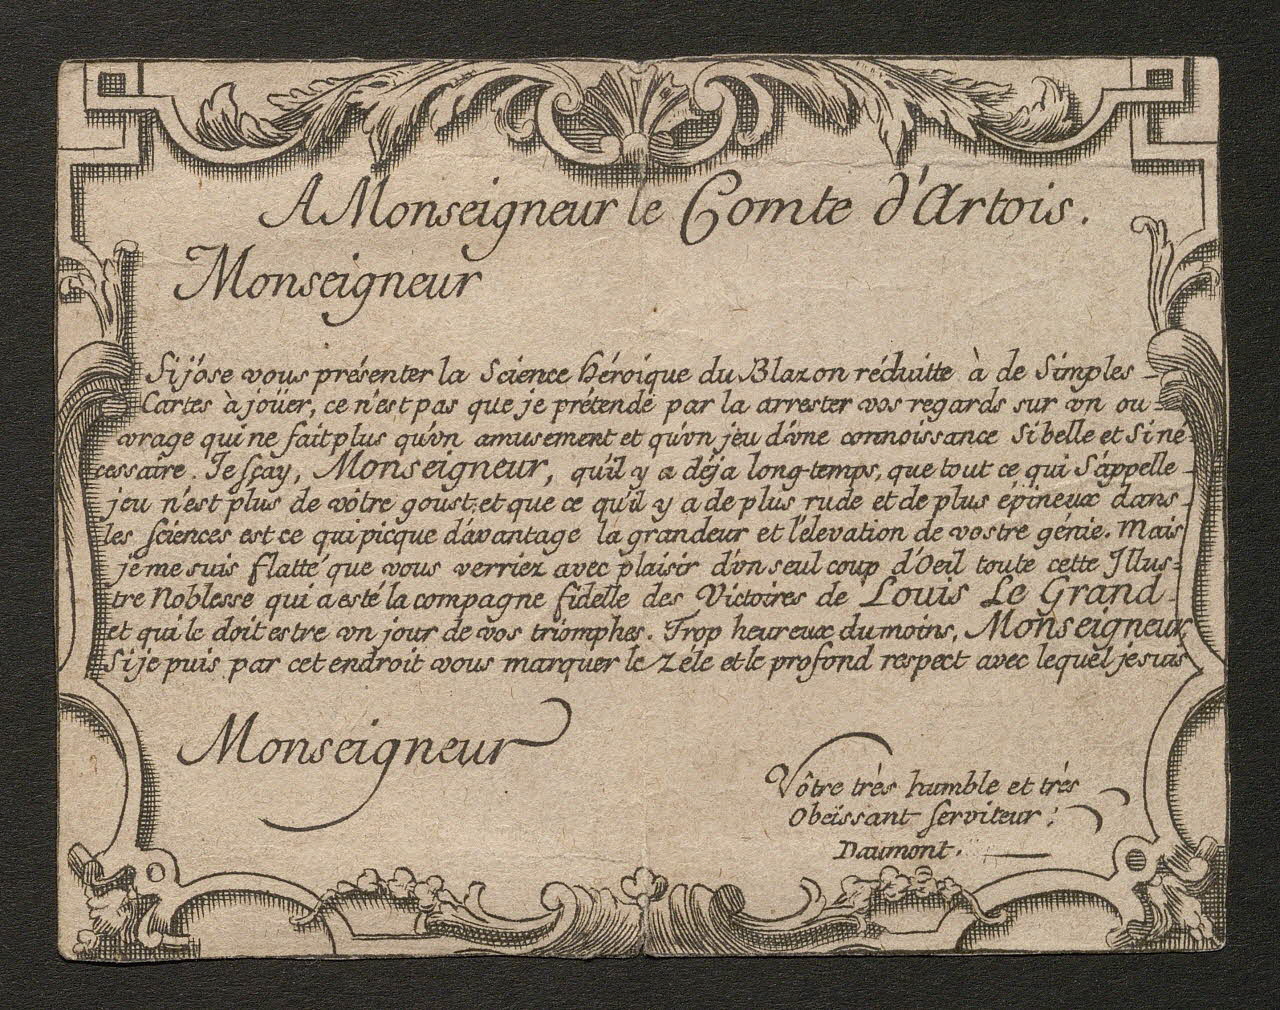 A Monseigneur le Comte d'Artois.
Monseigneur
Si j'ôse vous présenter la Science Héroïque du Blazon réduitte à de Simples
Cartes à joüer, ce n'est pas que je prétende par la arrester vos regards sur vn ou=
vrage qui ne fait plus qu'vn amusement et qu'vn jeu d'vne connoissance Si belle et Si né=
cessaire. Je sçay, Monseigneur, qu'il y a déja long-temps, que tout ce qui S'appelle
jeu n'est plus de vôtre goust; et que ce qu'il y a de plus rude et de plus épineux dans
les Sciences est ce qui picque d'avantage la grandeur et l'élevation de vostre génie. Mais
je me suis flatté que vous verriez avec plaisir d'vn seul coup d'Oeil toute cette Illus=
tre Noblesse qui a esté la compagne fidelle des Victoires de Louis Le Grand
et qui le doit estre vn jour de vos triomphes. Trop heureux du moins, Monseigneur,
Si je puis par cet endroit vous marquer le zéle et le profond respect avec lequel je suis
Monseigneur
Vôtre très humble et très
Obeïssant Serviteur;
Daumont.